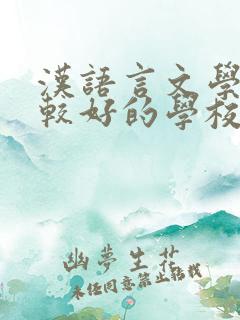 漢語言文學
較好的學校
幽夢生花
未經同意禁止轉載